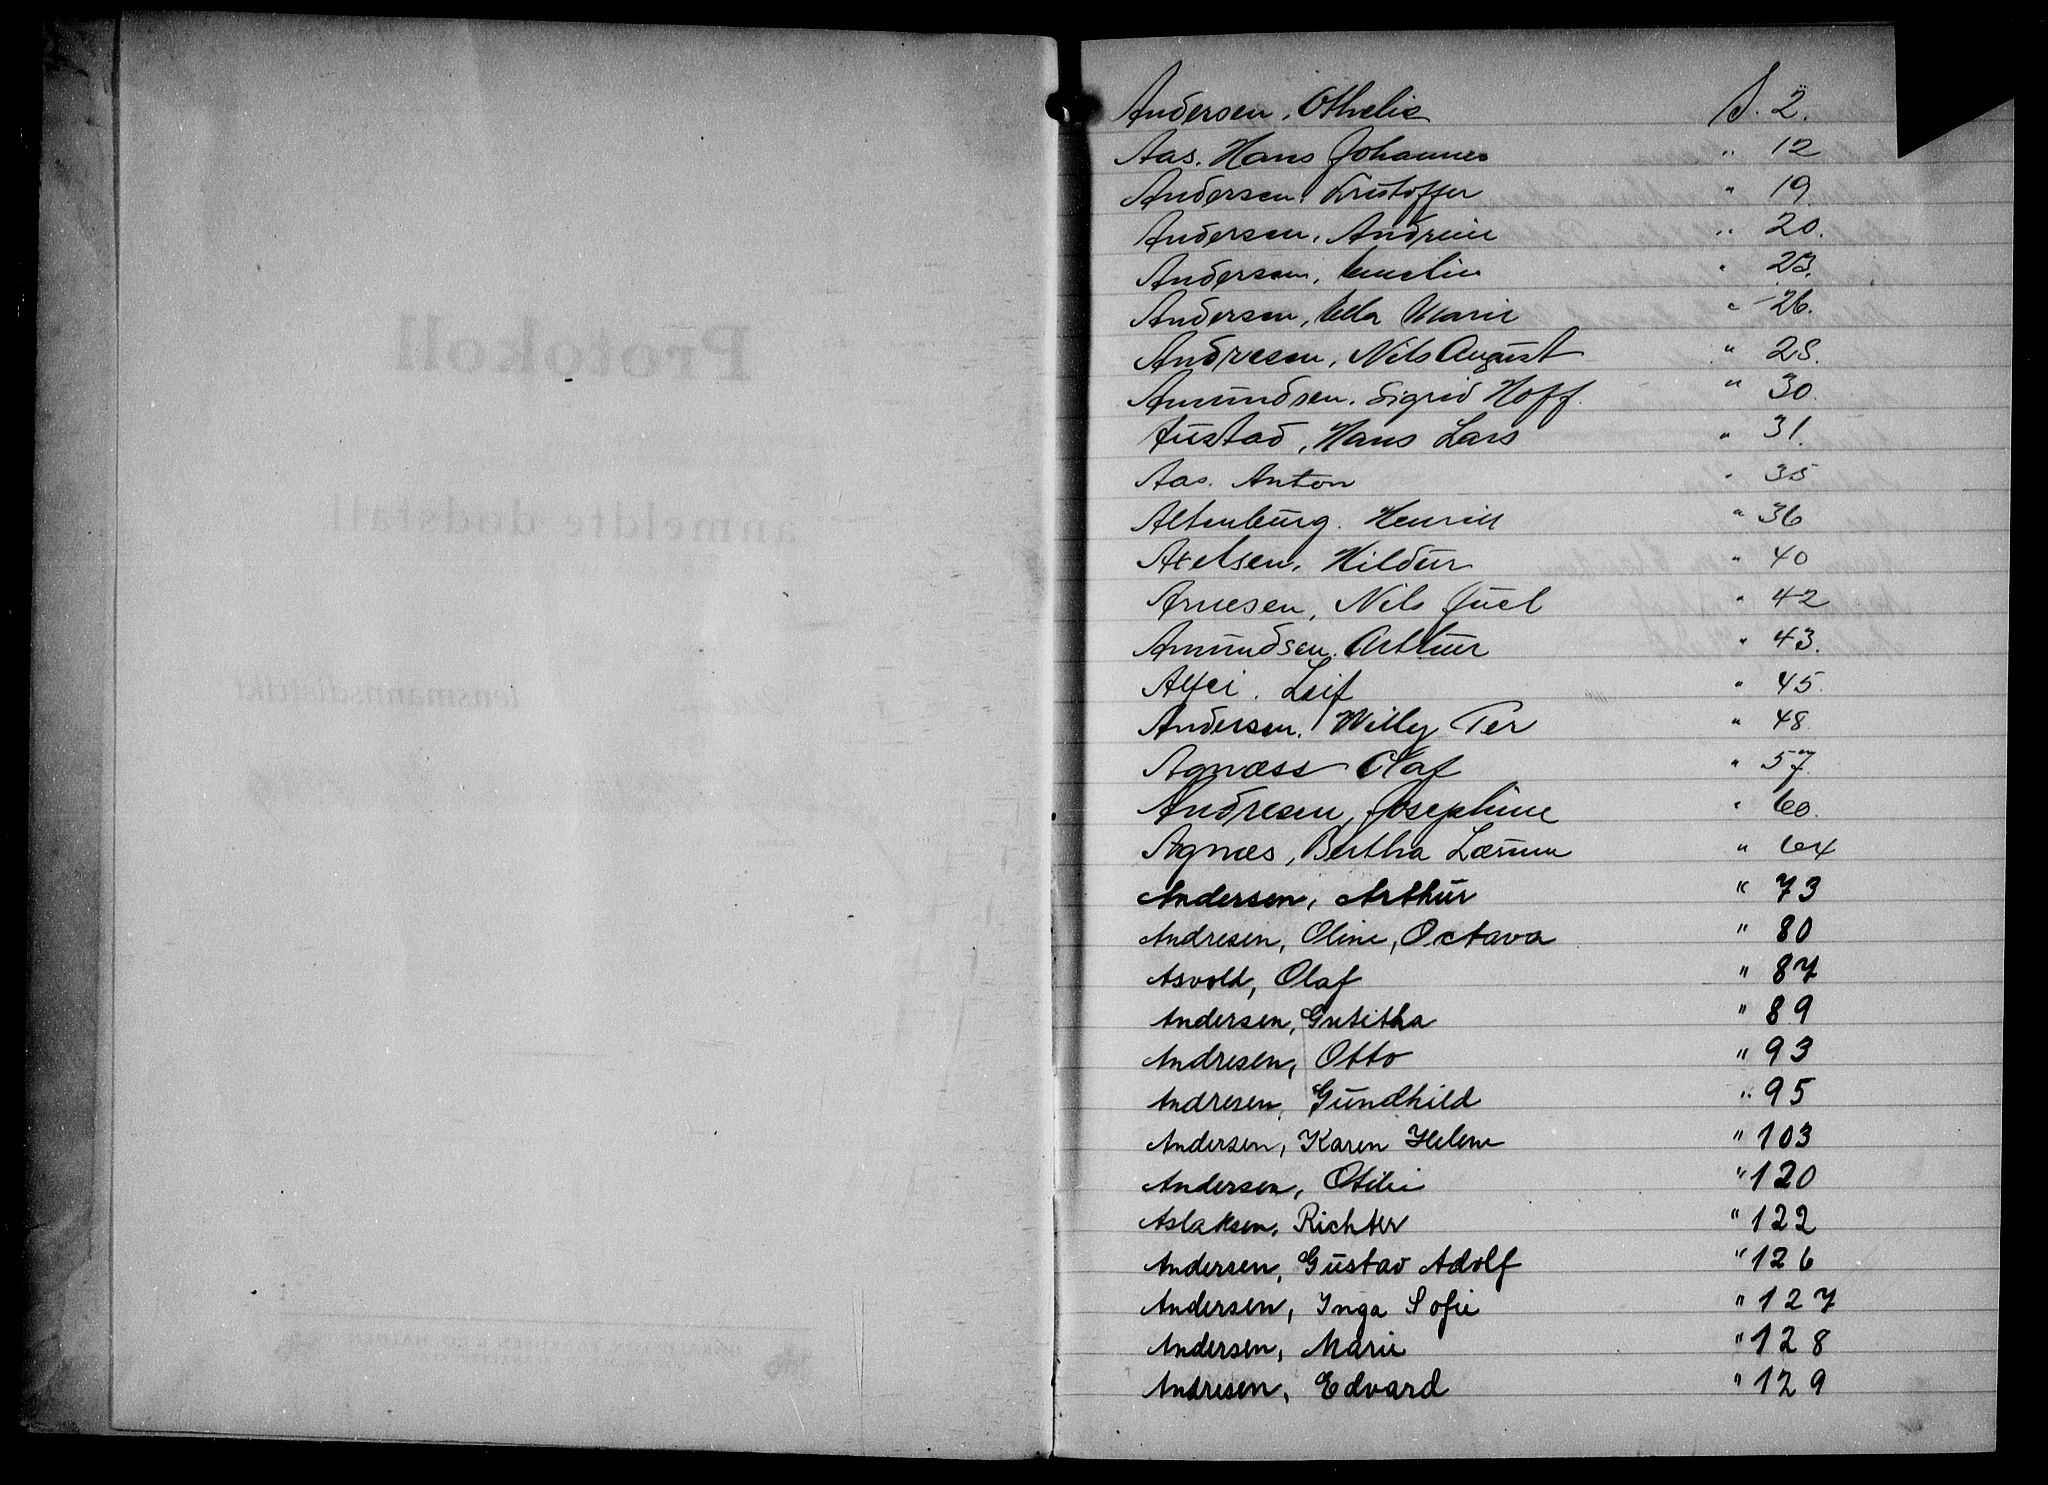 Protokoll
anmeldte dødsfall
i
lensmannsdistrikt
Andersen, Othelie S. 2.
Aas. Hans Johannes " 12
Andersen. Kristoffer " 19.
Andersen, Andrine " 20.
Andersen, Emelie " 23.
Andersen, Ella Marie " 26.
Andresen, Nils August " 28.
Amundsen. Sigrid Hoff. " 30.
Austad, Hans Lars " 31.
Aas. Anton " 35
Altenburg. Henrik " 36
Axelsen, Hildur " 40
Arnesen, Nils Juel " 42
Amundsen. Arthur " 43.
Alfei. Leif " 45.
Andersen. Willy Per " 48.
Agnæss Olaf " 57.
Andresen, Josephine " 60.
Agnæs, Bertha Lærum " 64
Andersen, Arthur " 73
Andresen, Oline, Octava " 80
Asvold, Olaf " 87
Andersen, Gutitha " 89
Andresen, Otto " 93
Andresen, Gundhild " 95
Andersen, Karen Helene " 103
Andersen, Otilie " 120
Aslaksen, Richter " 122
Andersen, Gustav Adolf " 126
Andersen, Inga Sofie " 127
Andersen, Marie " 128
Andresen, Edvard " 129